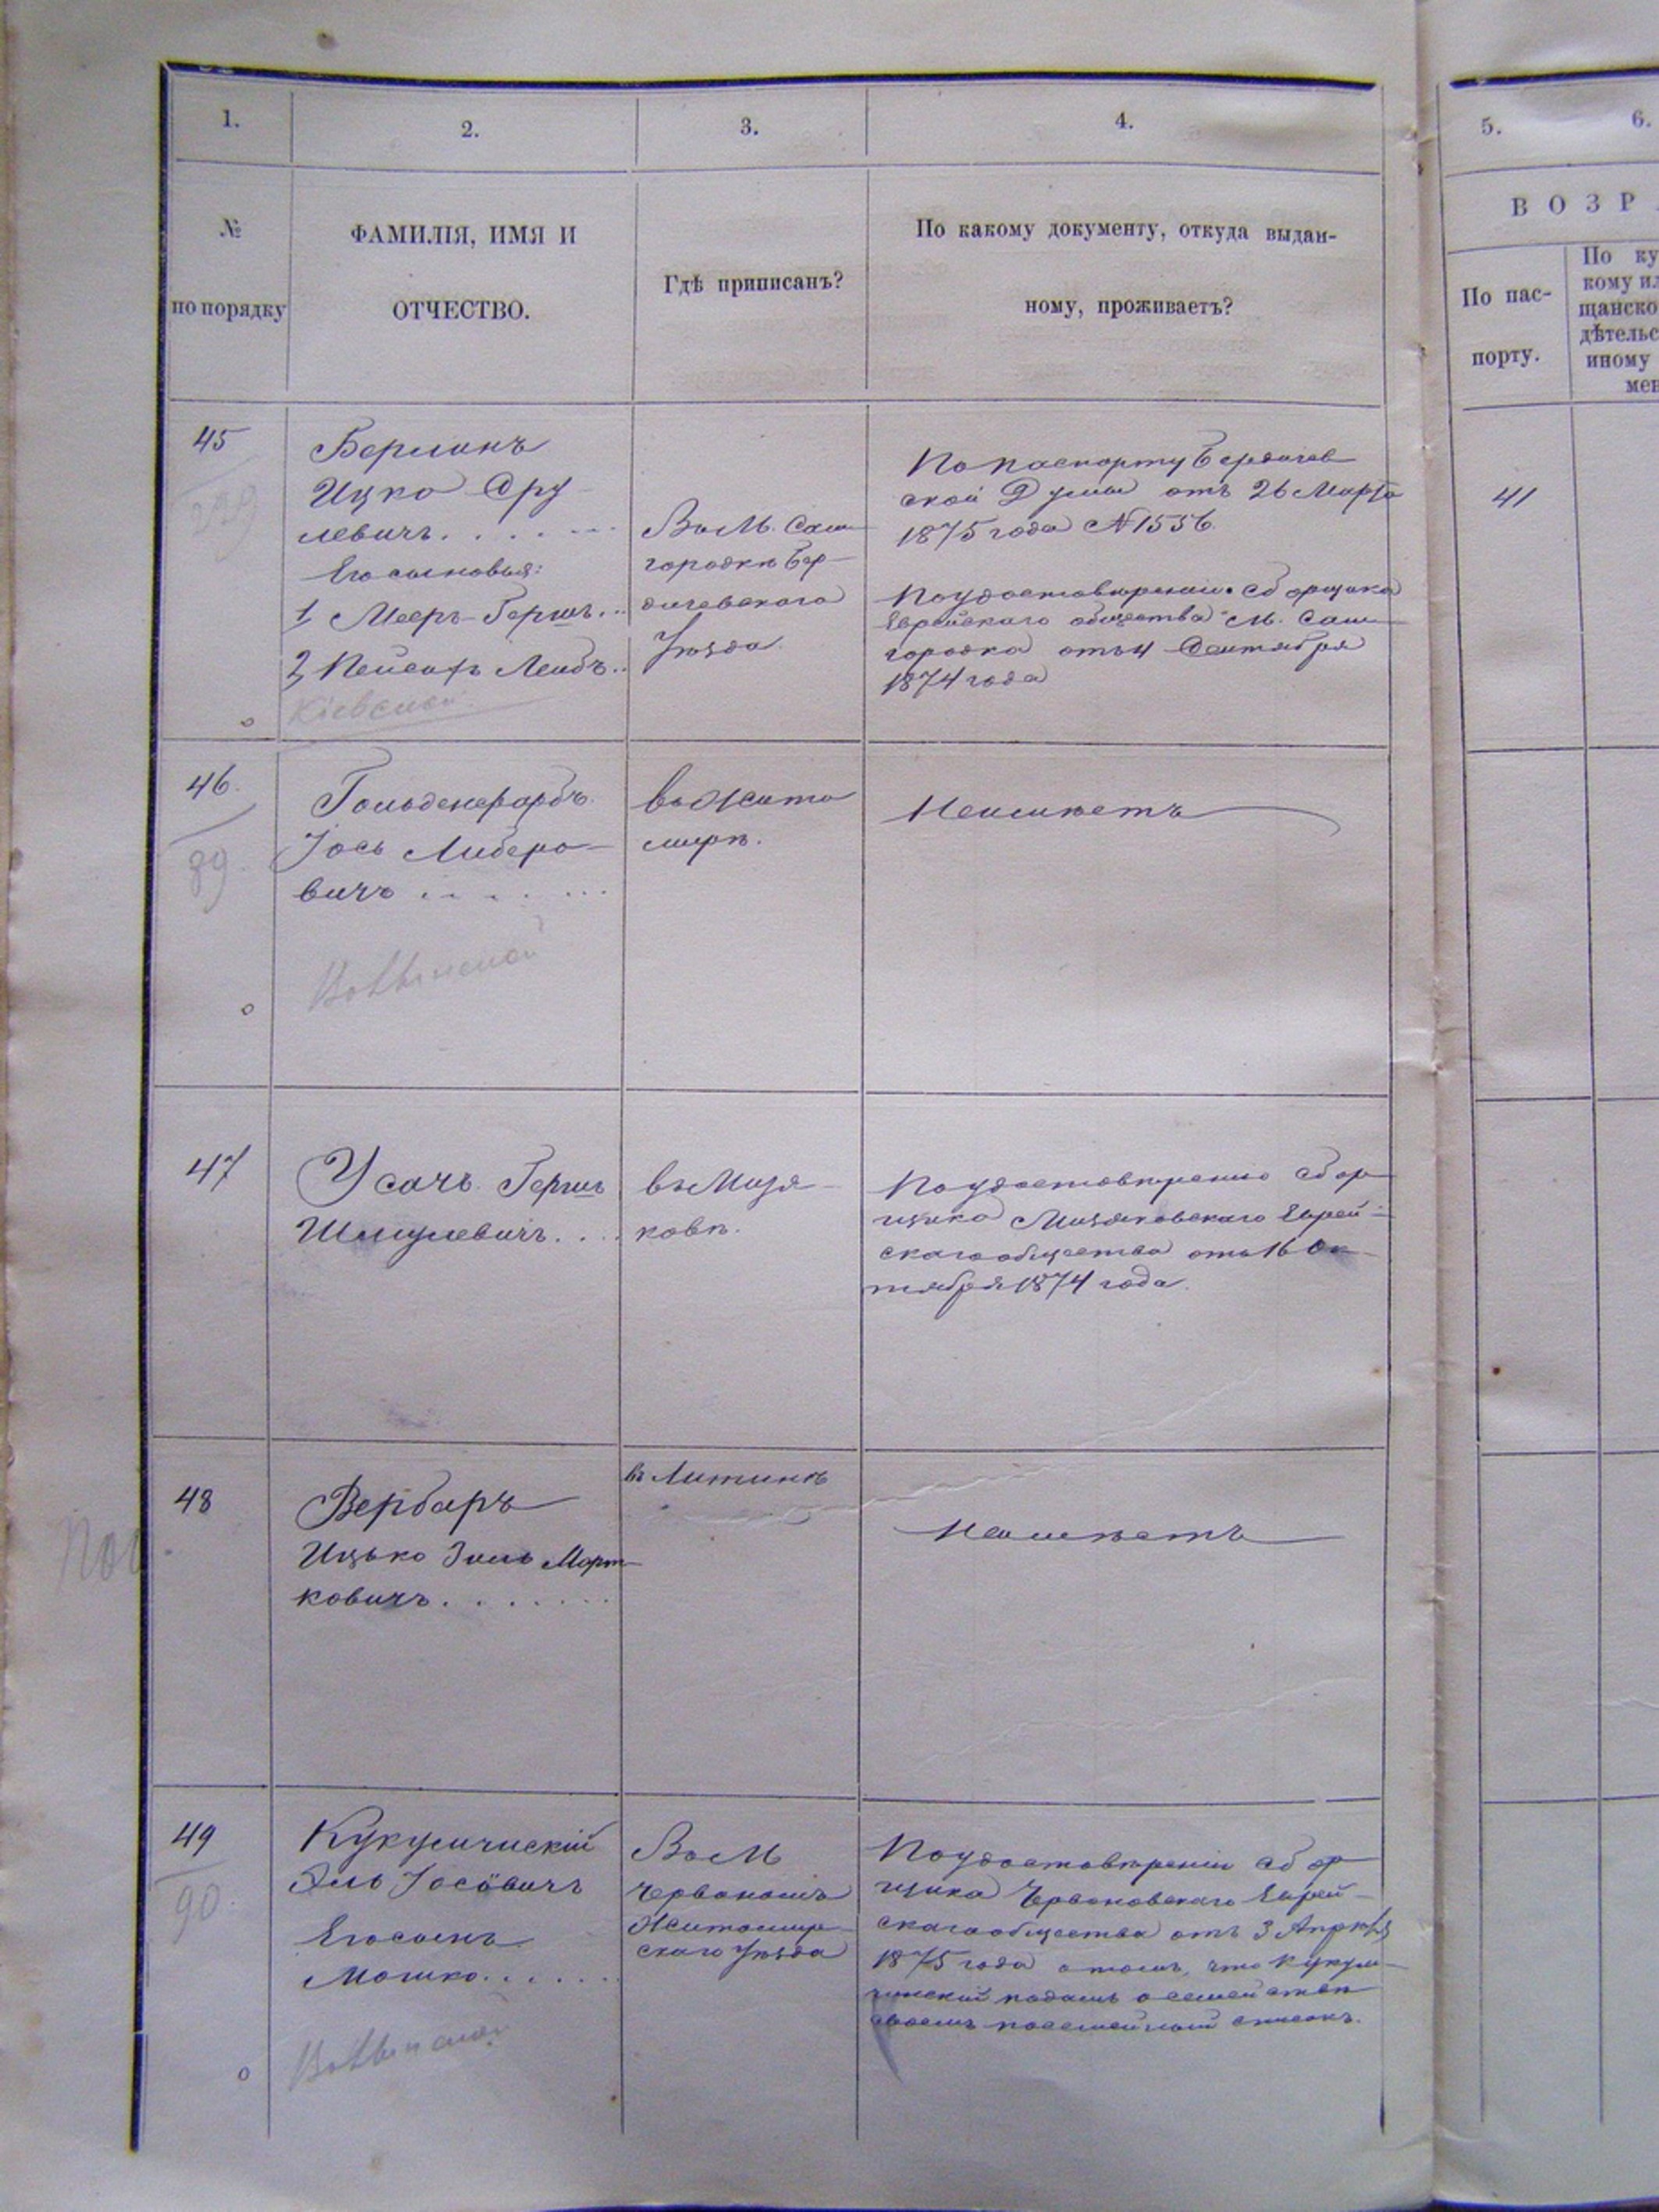 1.
2.
3.
4.
5.
6.
№
по порядку
ФАМИЛІЯ, ИМЯ И
ОТЧЕСТВО.
Гдѣ приписанъ?
По какому документу, откуда выдан-
ному, проживаетъ?
ВОЗР
По пас-
порту.
По ку
кому ил
щанско
дѣтельс
иному
мен
45
Берлинъ
Ицко Сру
левичъ.
Его сыновья:
1 Мееръ-Гершъ
2, Пейсахъ Лейбъ
Кіевской
Въ М. Сам
городкѣ Бер-
дичевскаго
Уѣзда
По паспорту Бердичев
ской Думы отъ 26 Марта
1875 года № 1556.
По удостовѣренію сборщика
Еврейскаго общества М. Сам
городка отъ 4 Сентября
1874 года
41
46.
89
Гольденфарбъ
Іось Либеро-
вичъ
Волынской
въ Жито
мирѣ.
Неимѣетъ
47
Усачъ Гершъ
Шмулевичъ
въ Мизя-
ковѣ.
По удостовѣренію сбор
щика Мизяковскаго Еврей-
скаго общества отъ 16 Ок-
тября 1874 года.
48
Вербаръ
Ицько Зиль Морт-
ковичъ
въ Литинѣ
Неимѣетъ
49
90
Кукуличискій
Эль Іосёвичъ
Его сынъ
Мошко
Волынской
Въ М
Червономъ
Житомир-
скаго Уѣзда
По удостовѣренію сбор
щика Червоновскаго Еврей-
скаго общества отъ 3 Апрѣля
1875 года о томъ, что Кукули-
чинскій подалъ о семействѣ
своемъ посемейный списокъ.